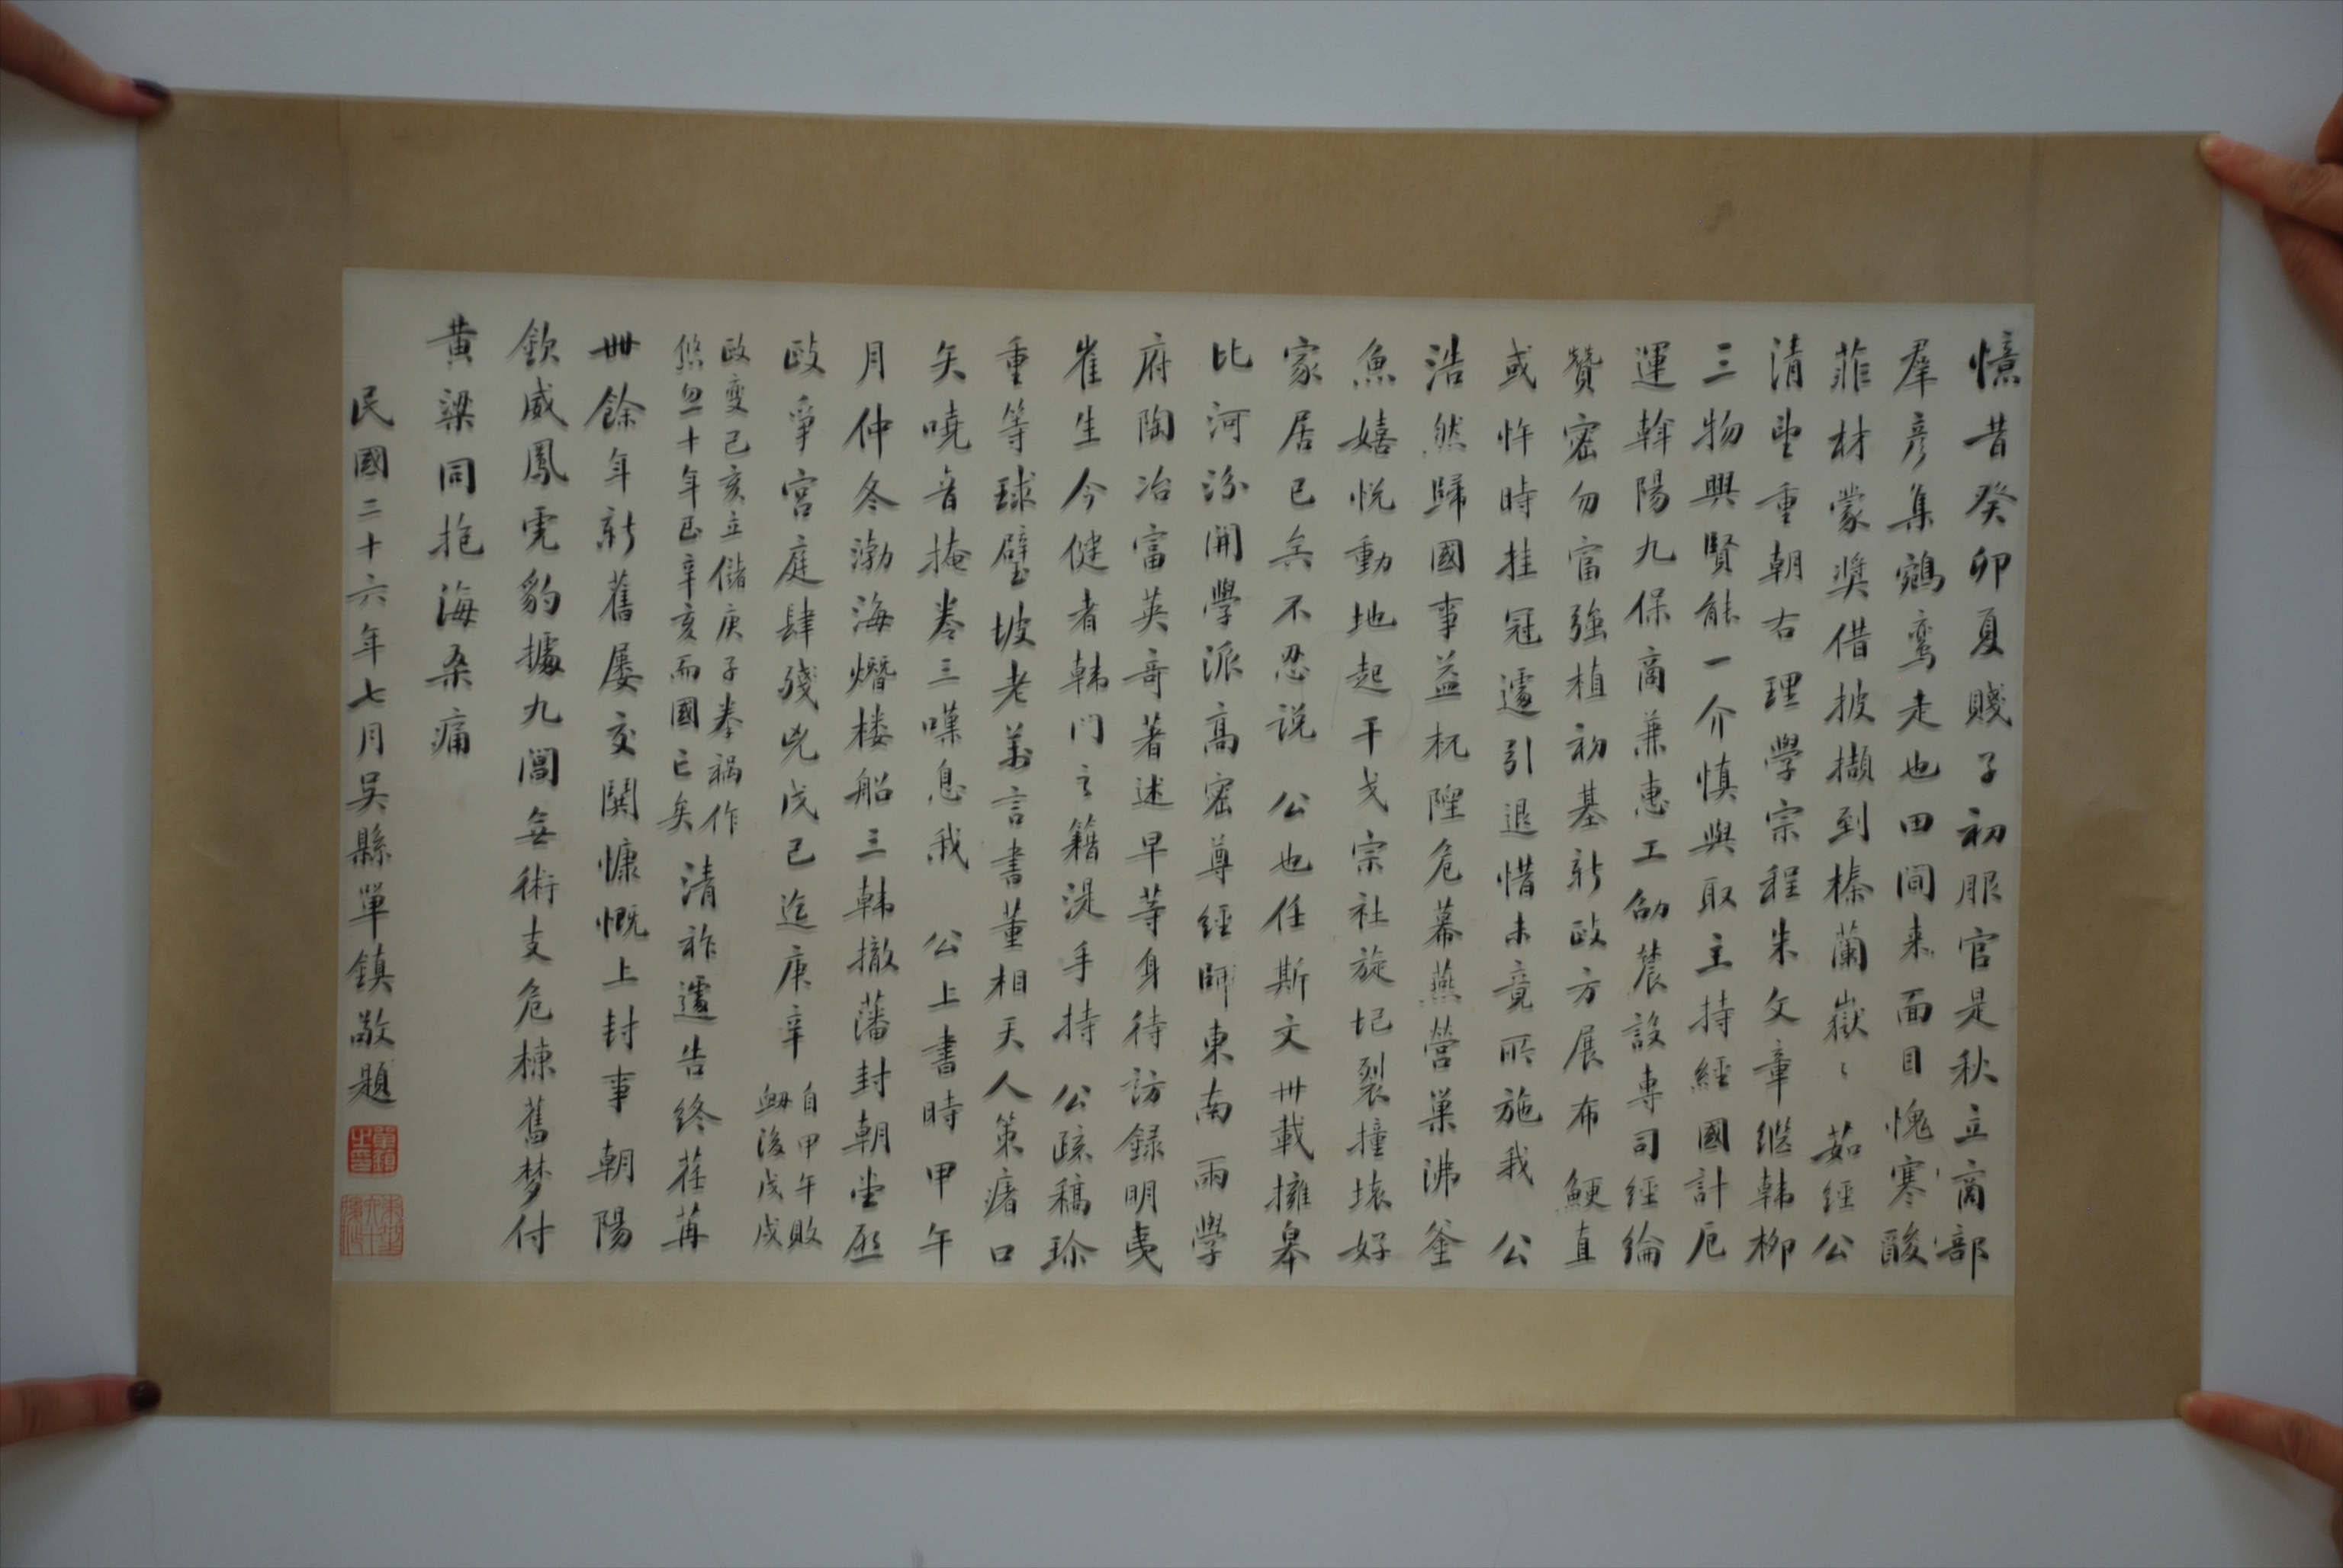 憶昔癸卯夏賤子初服官是秋立商部
羣彥集鵷鸞走也田間來面目愧寒酸
菲材蒙奨借披擷到榛蘭嶽〻茹經公
清望重朝右理學宗程朱文章繼韓柳
三物興賢能一介慎與取主持經國計厄
運斡陽九保商兼惠工劭農設專司經綸
贊密勿富強植初基新政方展布鯁直
或忤時挂冠遽引退惜未竟所施我公
浩然歸國事益杌隉危幕燕營巢沸釜
魚嬉悅動地起干戈宗社旋圮裂撞壞好
家居已矣不忍說公也任斯文卅載擁皋
比河汾開學派高密尊經師東南兩學
府陶冶富英奇著述早等身待訪錄明夷
崔生今健者韓門之籍湜手持公疏稿珎
重等球璧坡老萬言書董相天人策瘏口
矢嘵音掩卷三嘆息我公上書時甲午
月仲冬渤海熸楼船三韓撤藩封朝堂啟
政爭宮庭肆殘兇戊己迄庚辛
自甲午敗
衂後戊戌
政变己亥立儲庚子拳禍作
倏忽十年至辛亥而國亡矣
清祚遽告终荏苒
卌餘年新舊屢交鬨慷慨上封事朝陽
欽威鳳虎豹據九閽無術支危棟舊梦付
黄粱同抱海桑痛
民國三十六年七月吳縣單鎮敬題